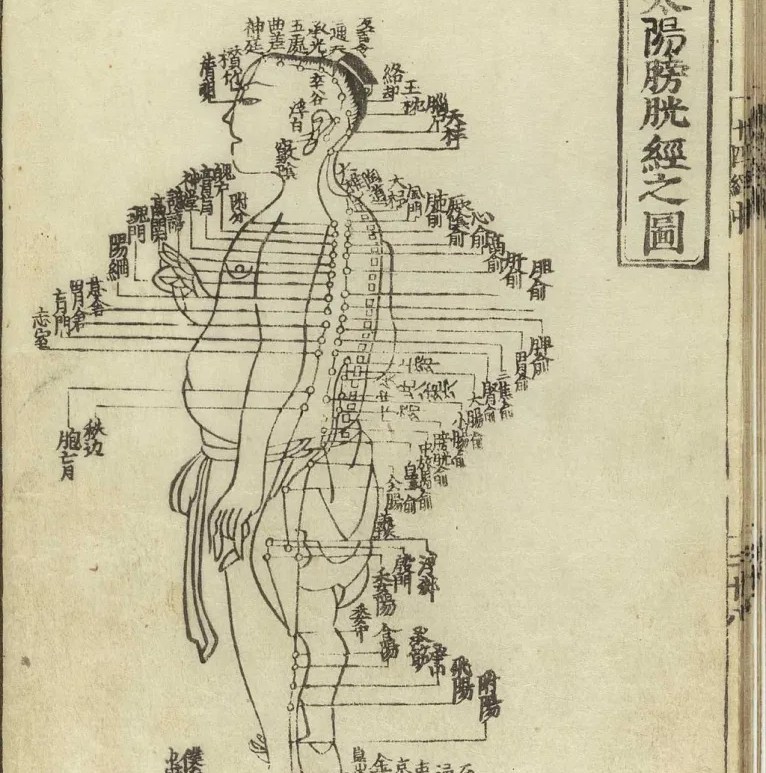 太陽膀胱經之圖
十四經
神庭
曲差
五處
承光
通天
絡却
玉枕
腦
天柱
攅竹
睛明
率谷
浮白
竅陰
大椎
陶道
大杼
風門
肺俞
厥陰俞
心俞
膈俞
肝俞
胆俞
脾俞
胃俞
三焦俞
腎俞
大腸俞
小腸俞
膀胱俞
中膂內俞
白環俞
附分
魄戶
膏肓
神堂
譩譆
膈関
魂門
陽綱
意舍
胃倉
肓門
志室
胞肓
秩边
會陽
殷門
浮郄
委陽
委中
合陽
承筋
承山
飛陽
附陽
僕
金
京